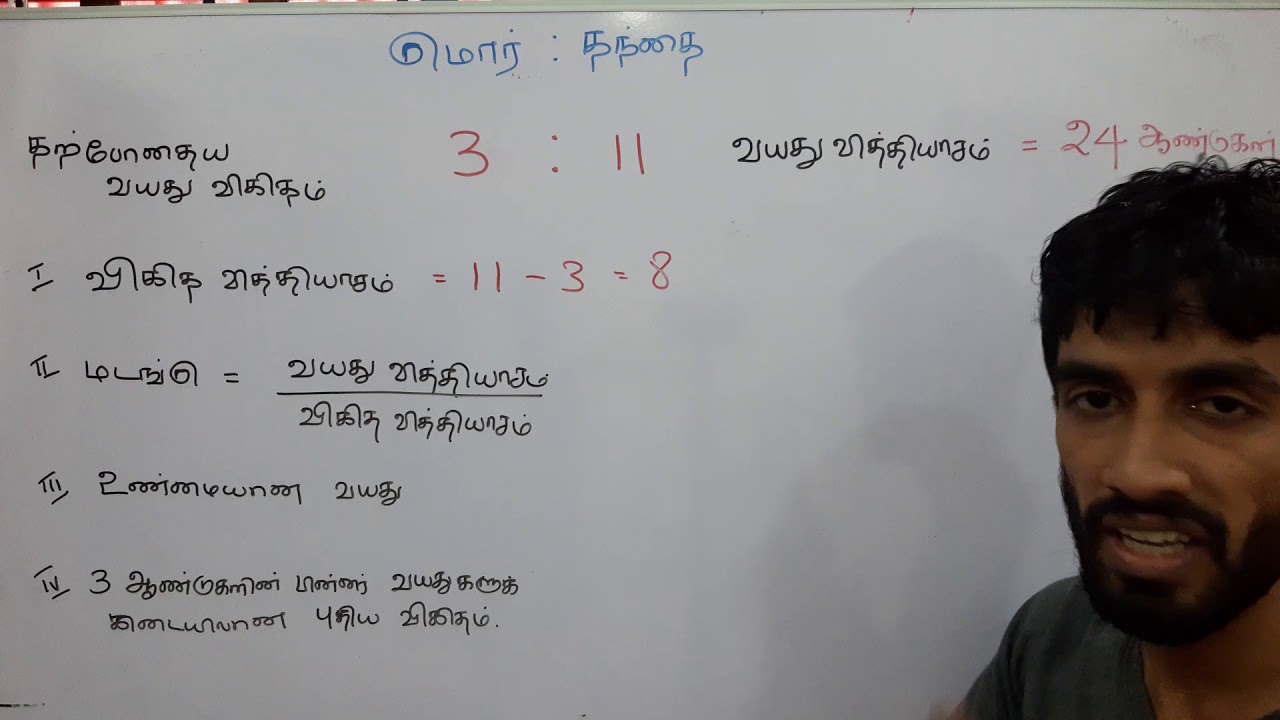 மொர் : தந்தை
தற்போதைய 3 : 11 வயது வித்தியாசம் = 24 ஆண்டுகள்
வயது விகிதம்
I விகித வித்தியாசம் = 11 - 3 = 8
II மடங்கு = வயது வித்தியாசம்
விகித வித்தியாசம்
III உண்மையான வயது
IV 3 ஆண்டுகளின் பின்னர் வயதுகளுக்
கிடையிலான புதிய விகிதம்.